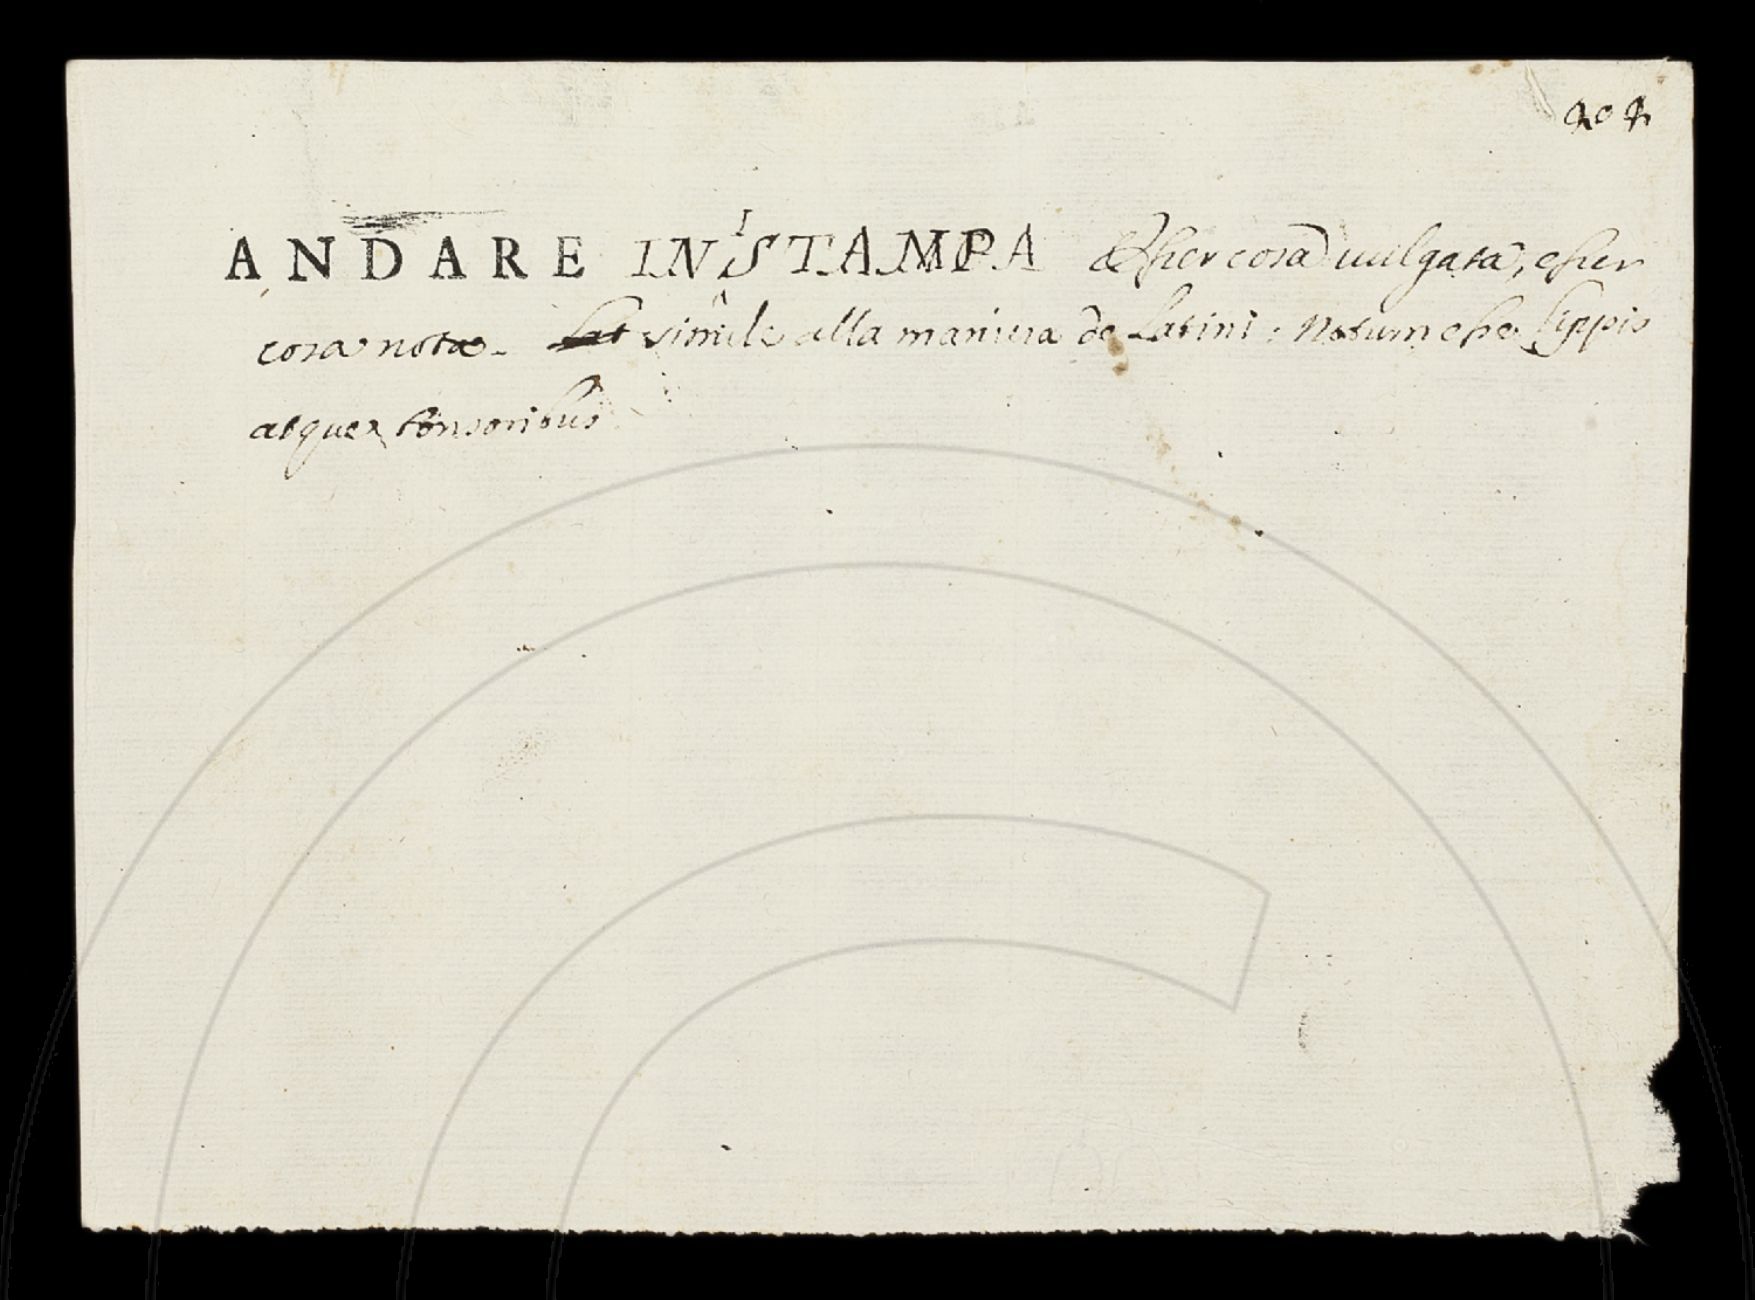 202
ANDARE IN ISTAMPA Esser cosa vulgata, esser
cosa nota. Lat simile alla maniera de Latini: Notum esse lippis
atque tonsoribus